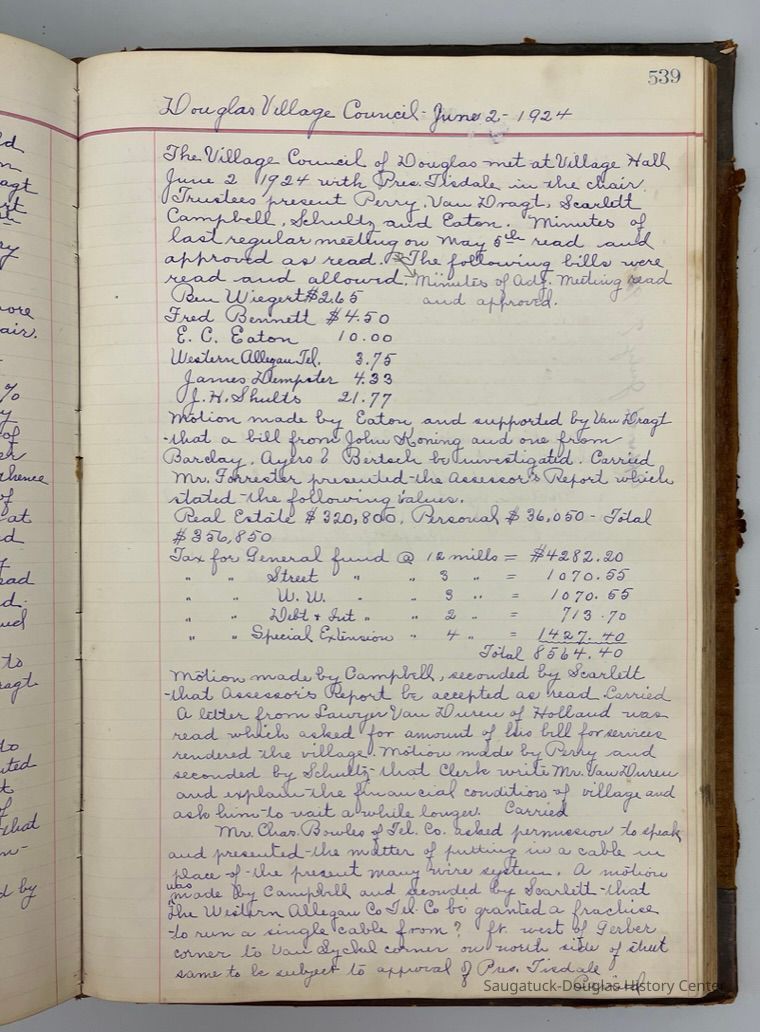 539
Douglas Village Council - June 2 - 1924
The Village Council of Douglas met at Village Hall
June 2 1924 with Pres. Tisdale in the chair.
Trustees present Perry, Van Dragt, Scarlett
Campbell, Schultz and Eaton. Minutes of
last regular meeting on May 5th read and
approved as read. The following bills were
read and allowed. Minutes of Adj. Meeting read
and approved.
Ben Wiegert $2.65
Fred Bennett $4.50
E. C. Eaton 10.00
Western Allegan Tel. 3.75
James Dempster 4.33
J. H. Shults 21.77
Motion made by Eaton and supported by Van Dragt
that a bill from John Koning and one from
Barclay, Ayers & Bertsch be investigated. Carried
Mr. Forrester presented the Assessor's Report which
stated the following values.
Real Estate $320,800. Personal $36,050 - Total
$356,850
Tax for General fund @ 12 mills = $4282.20
" " Street " " 3 " = 1070.55
" " W. W. " " 3 " = 1070.55
" " Debt + Int " " 2 " = 713.70
" " Special Extension " 4 " = 1427.40
Total 8564.40
Motion made by Campbell, seconded by Scarlett
that Assessor's Report be accepted as read. Carried
A letter from Lawyer Van Duren of Holland was
read which asked for amount of his bill for services
rendered the village. Motion made by Perry and
seconded by Schultz that Clerk write Mr. Van Duren
and explain the financial conditions of village and
ask him to wait a while longer. Carried
Mr. Chas. Bowles of Tel. Co. asked permission to speak
and presented the matter of putting in a cable in
place of the present many wire system. A motion
was
made by Campbell and seconded by Scarlett that
the Western Allegan Co Tel. Co be granted a frachise
to run a single cable from ? ft. west of Gerber
corner to Van Syckel corner on north side of street
same to be subject to approval of Pres. Tisdale
Carried
Saugatuck-Douglas History Center